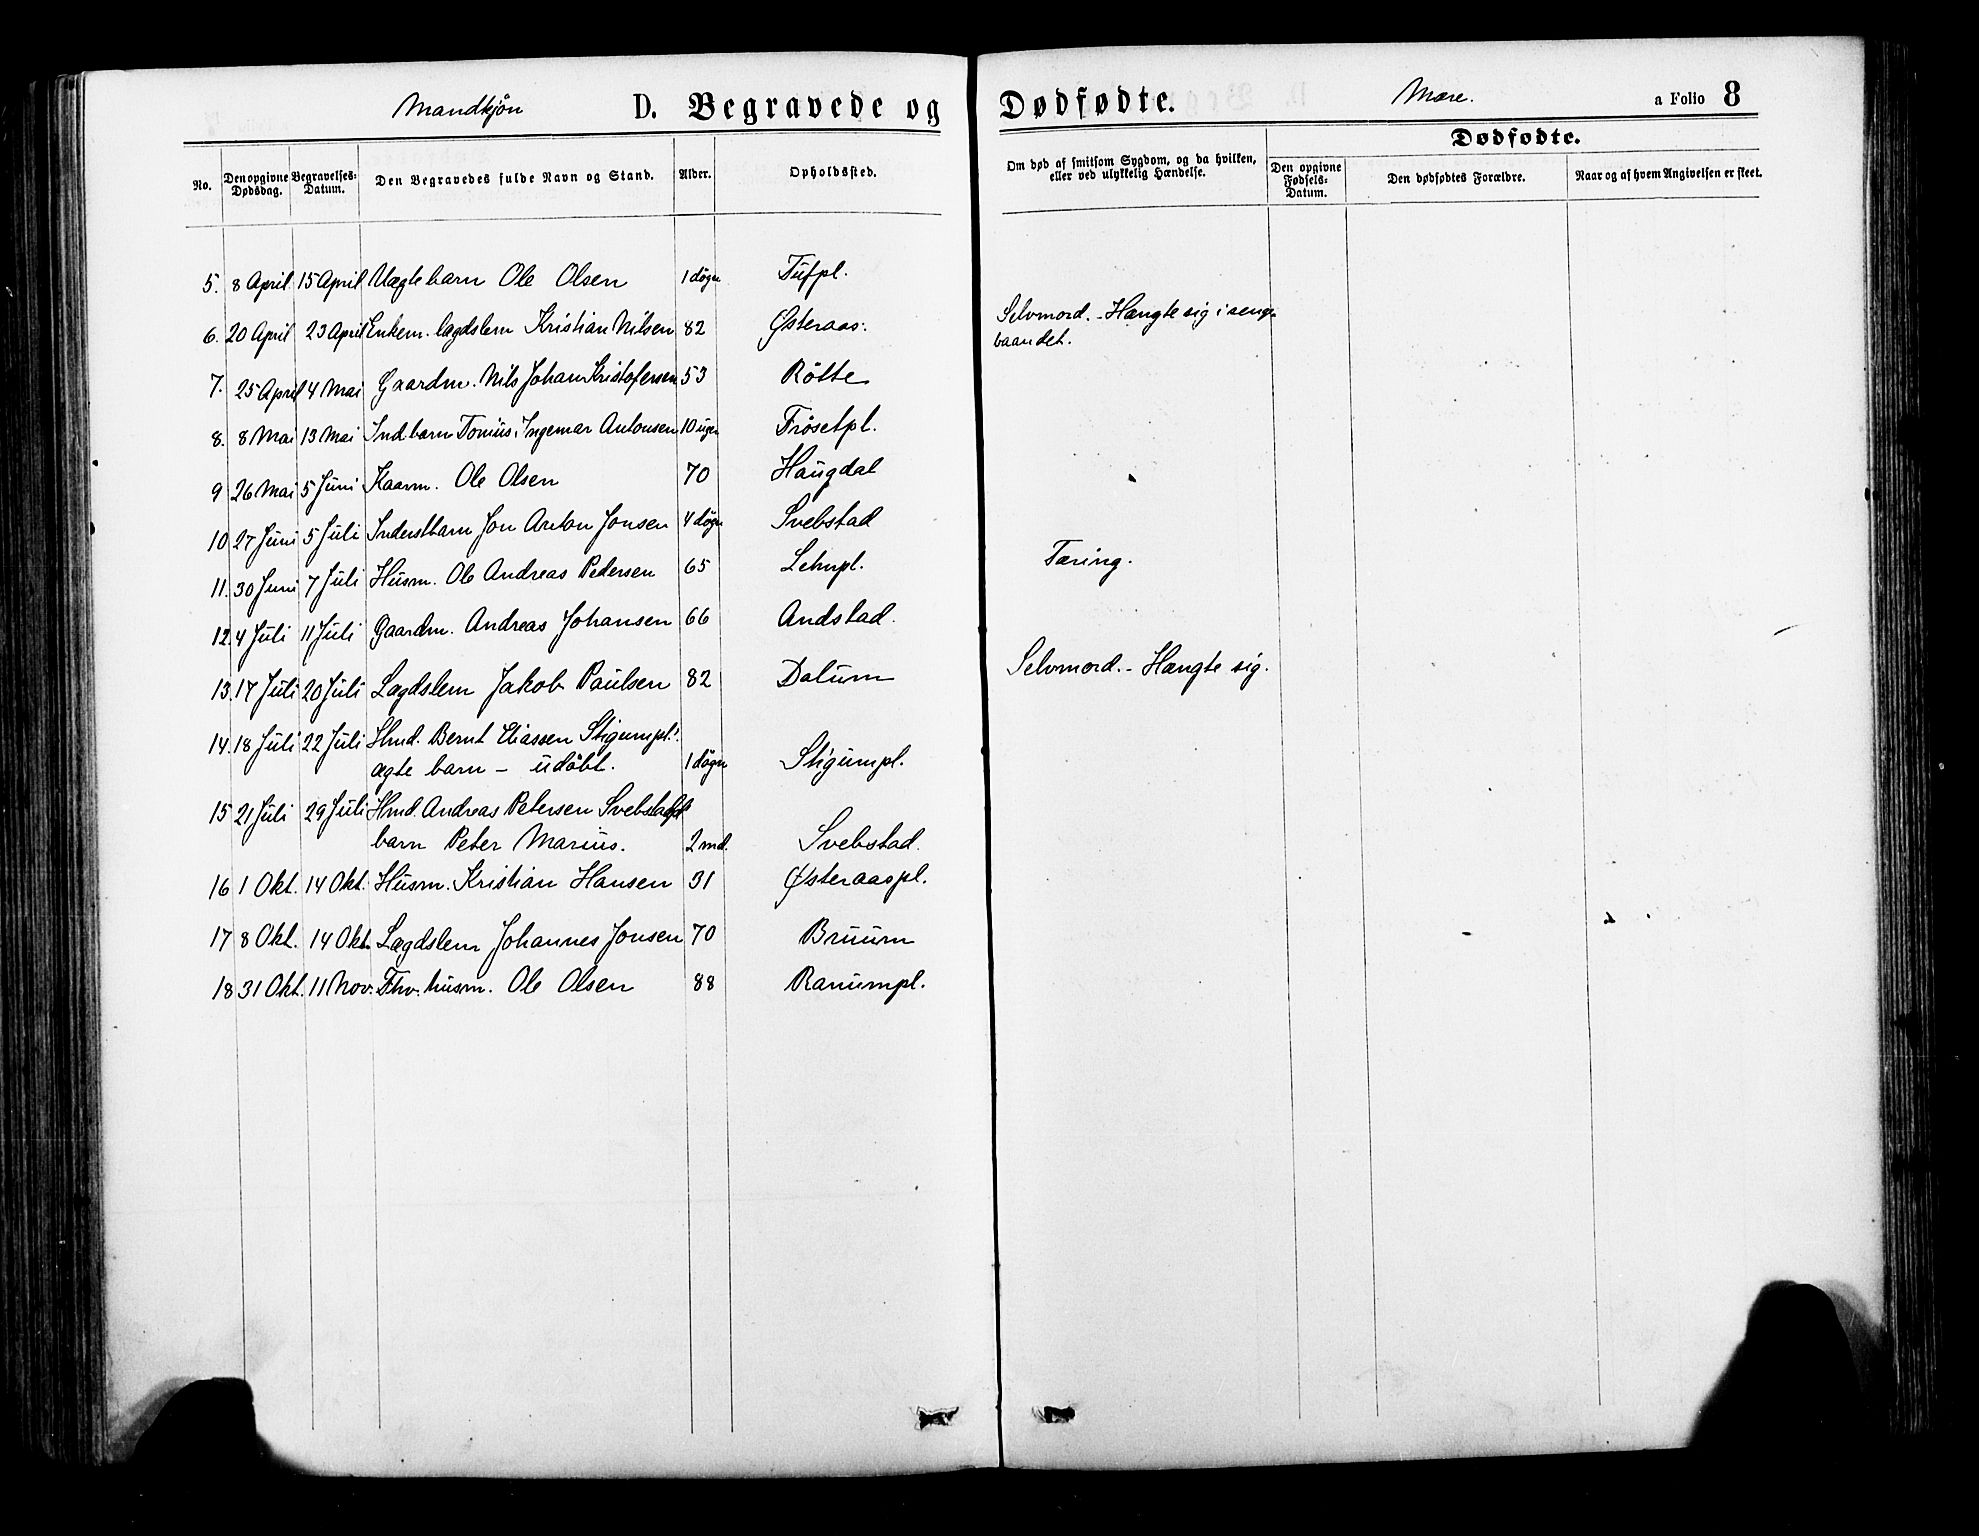 Mandkjön D. Begravede og Dødfødte. Mære. a Folio 8
No. Den opgivne Dødsdag. Begravelses-Datum. Den Begravedes fulde Navn og Stand. Alder. Opholdssted. Om død af smitsom Sygdom, og da hvilken, eller ved ulykkelig Hændelse. Dødfødte. Den opgivne Fødsels-Datum. Den dødfødtes Forældre. Naar og af hvem Angivelsen er skeet.
5. 8 April 15 April Uægte barn Ole Olsen 1 døgn Tufpl.
6. 20 April 23 April Enkem. lægdslem Kristian Nilsen 82 Østeraas. Selvmord. - Hængte sig i senge-
baandet.
7. 25 April 4 Mai Gaardm. Nils Johan Kristofersen 53 Rötte
8. 8 Mai 13 Mai Ind. barn Tonius Ingemar Antonsen 10 uger Frösetpl.
9 26 Mai 5 Juni Kaarm. Ole Olsen 70 Haugdal
10 27 Juni 5 Juli Inderstbarn Jon Anton Jonsen 4 døgn Svebstad
11. 30 Juni 7 Juli Husm. Ole Andreas Pedersen 65 Lehnpl. Tæring.
12. 4 Juli 11 Juli Gaardm. Andreas Johansen 66 Andstad.
13. 17 Juli 20 Juli Lægdslem Jakob Paulsen 82 Dalum Selvmord. - Hængte sig.
14. 18 Juli 22 Juli Hmd. Bernt Eliassen Stigumpl.
ægte barn - udøbt. 1 døgn Stigumpl.
15 21 Juli 29 Juli Hmd. Andreas Petersen Svebstadpl
barn Peter Marius. 2 md. Svebstad.
16 1 Okt. 14 Okt. Husm. Kristian Hansen 31 Østeraaspl.
17 8 Okt. 14 Okt. Lægdslem Johannes Jonsen 70 Bruum
18 31 Okt. 11 Nov. Fhv. husm. Ole Olsen 88 Ranumpl.